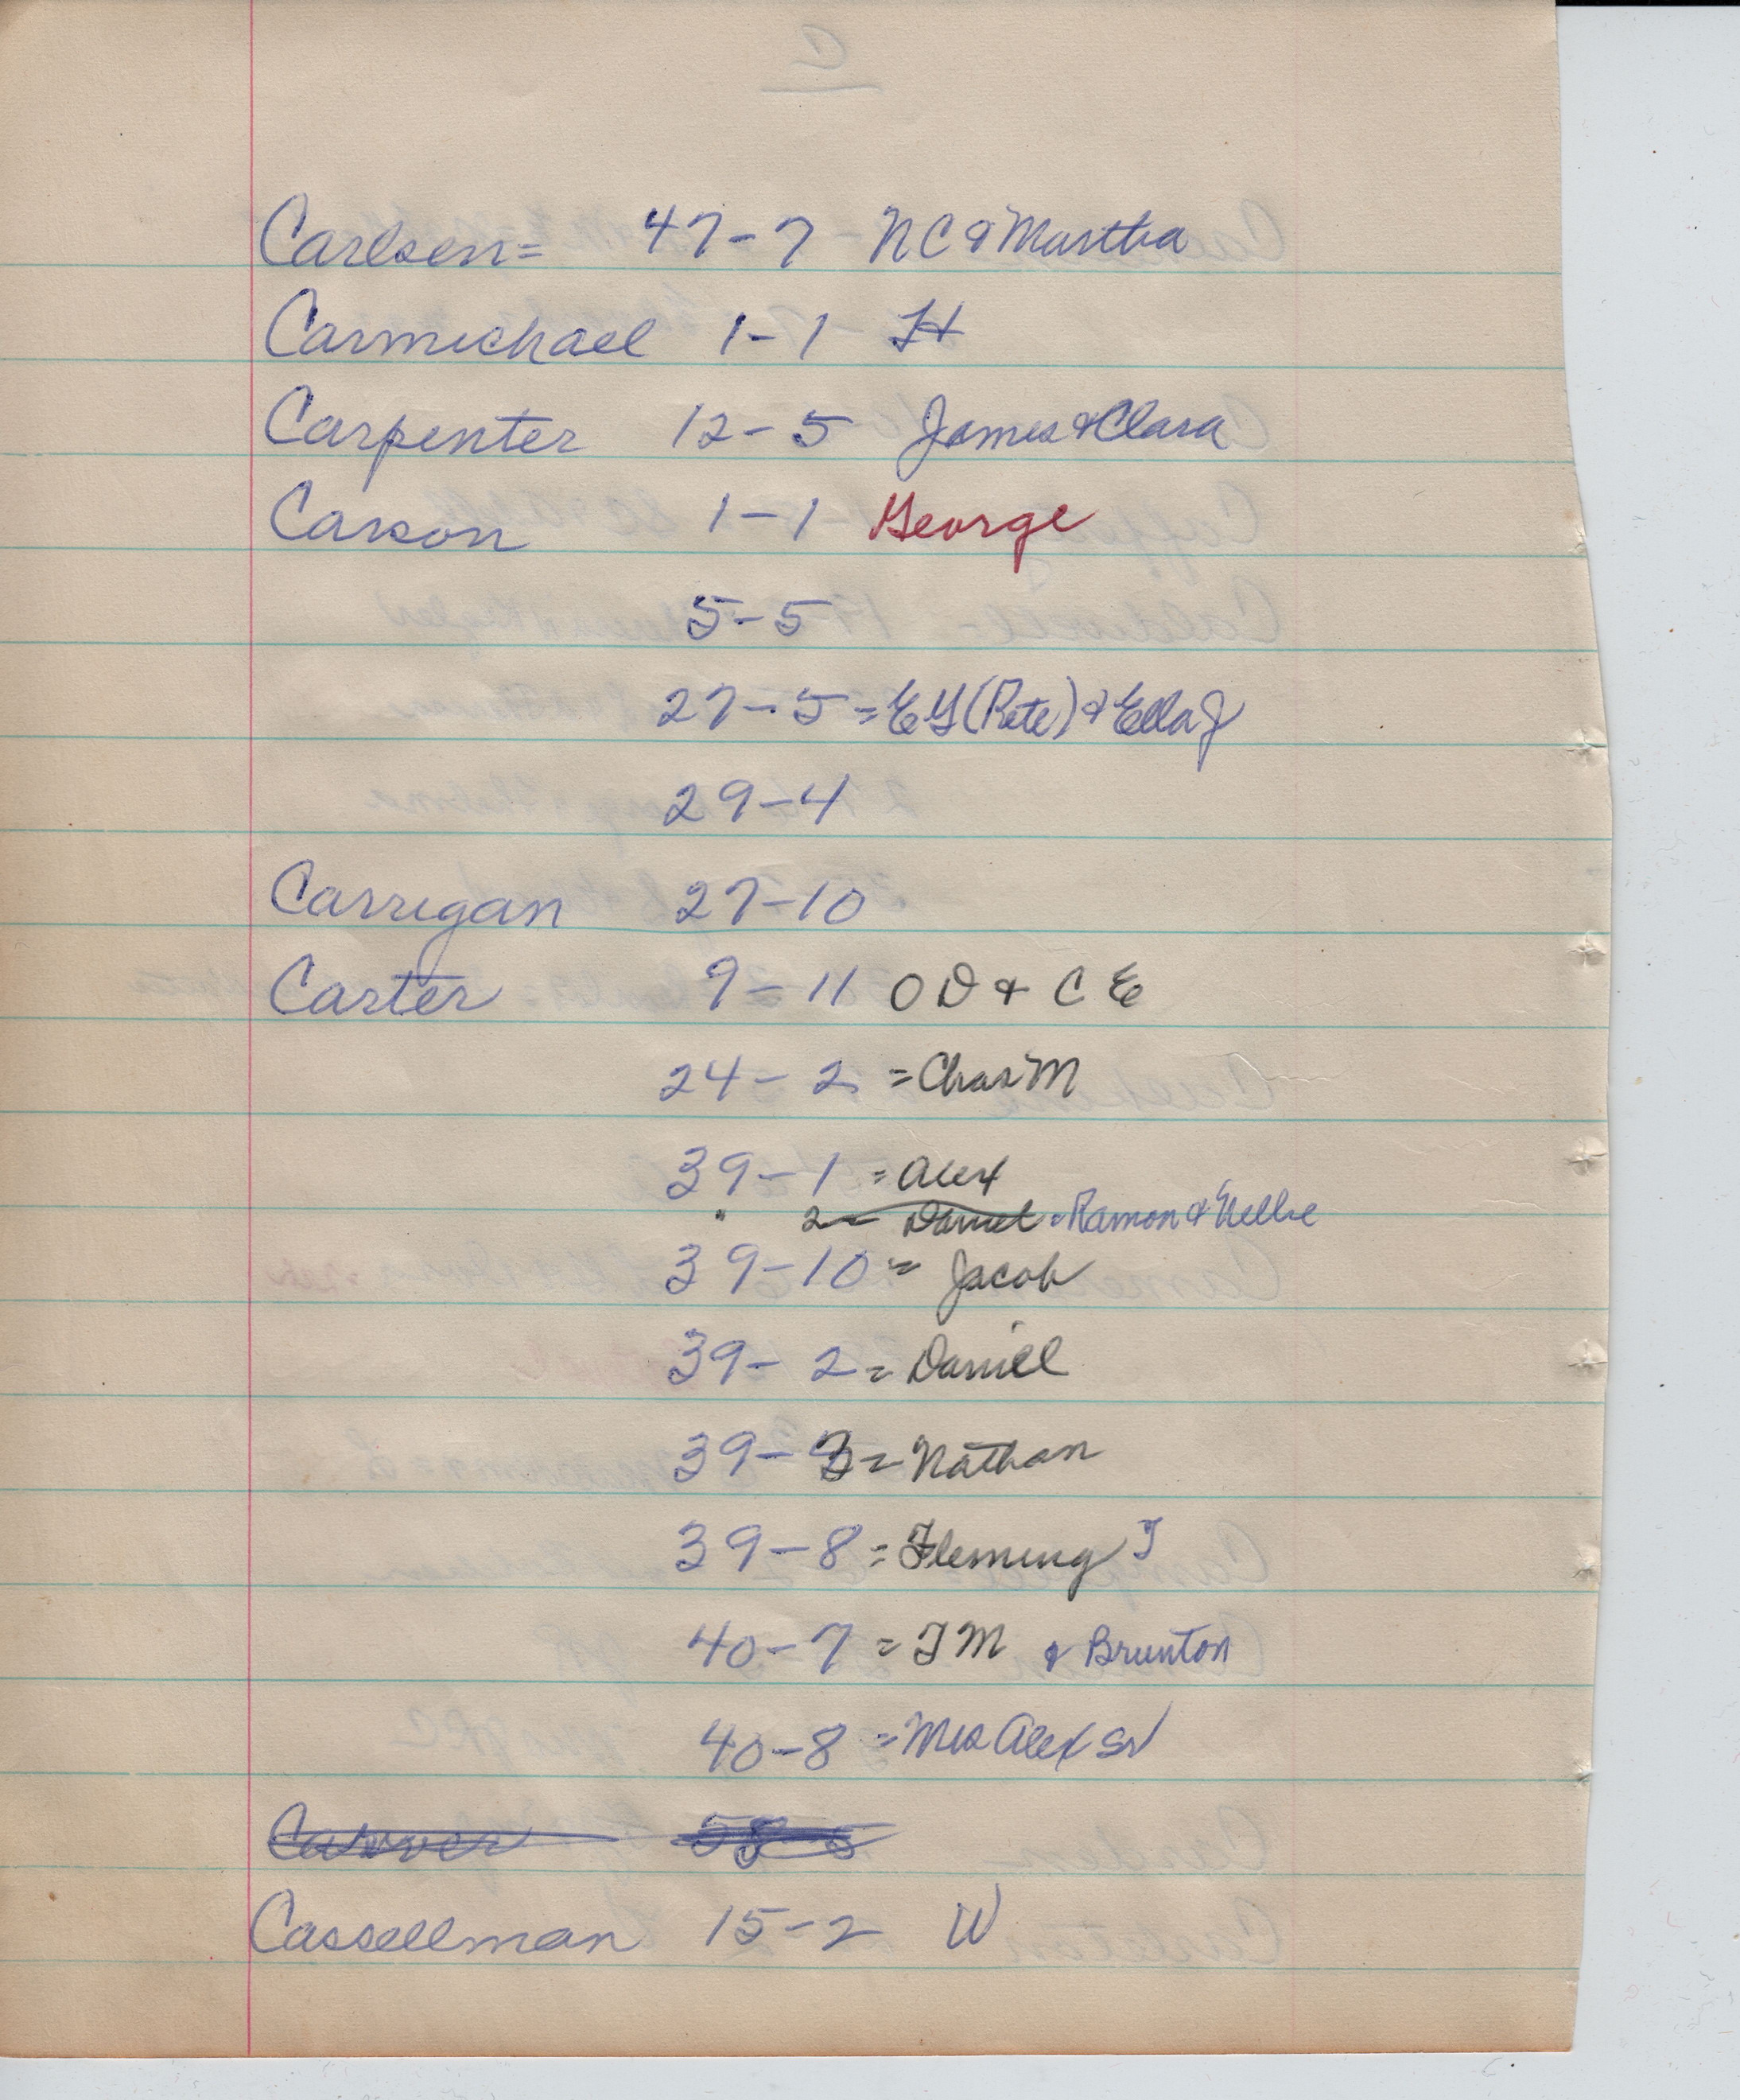 C
Carlsen= 47-7 NC & Martha
Carmichael 1-1 H
Carpenter 12-5 James & Clara
Carson 1-1 George
5-5
27-5 = EG (Pete) & Ella J
29-4
Carrigan 27-10
Carter 9-11 O D & C E
24-2 = Chas M
39-1 = Alex
" 2 = Daniel = Ramon & Nellie
39-10 = Jacob
39-2 = Daniel
39-3 = Nathan
39-8 = Fleming T
40-7 = T M & Brunton
40-8 = Mrs Alex Sr
Carver 58-5
Cassellman 15-2 W